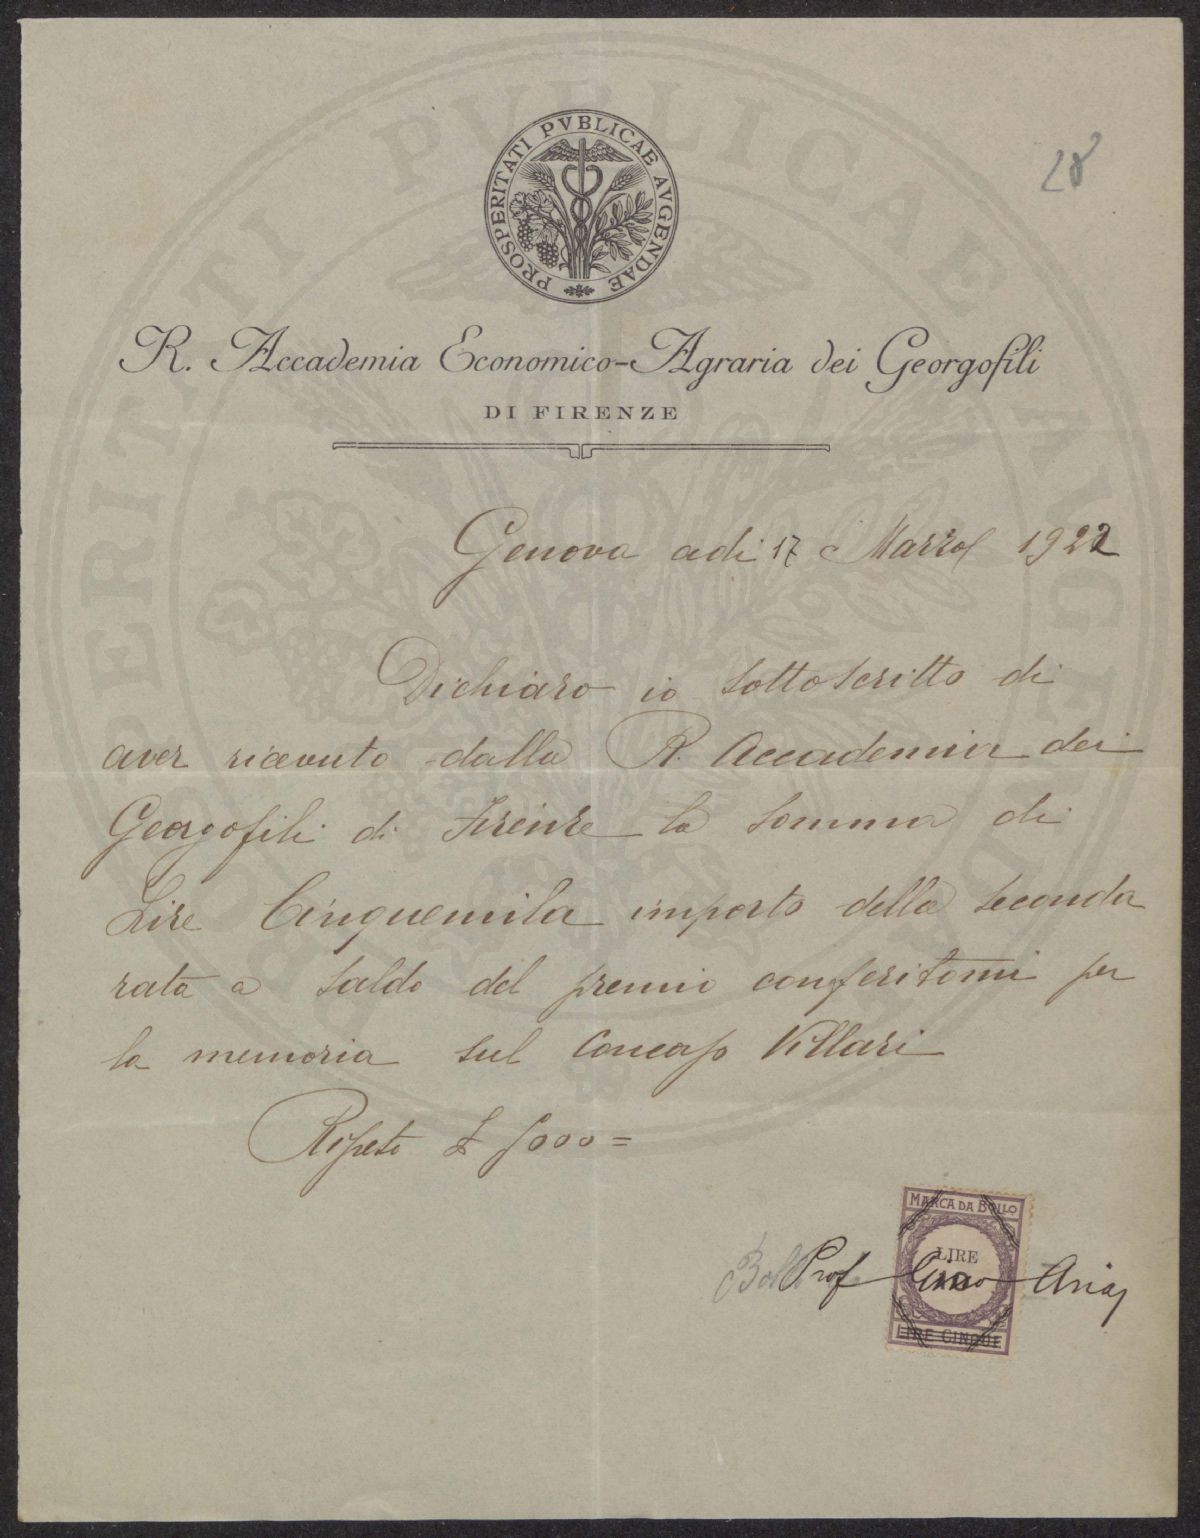 28
PROSPERITATI PVBLICAE AVGENDAE
R. Accademia Economico-Agraria dei Georgofili
DI FIRENZE
Genova adi 17 Marzo 1922
Dichiaro io sottoscritto di
aver ricevuto dalla R. Accademia dei
Georgofili di Firenze la somma di
Lire Cinquemila importo della seconda
rata a saldo del premio conferitomi per
la memoria sul Concorso Villari
Ripeto £ 5000=
MARCA DA BOLLO
LIRE
Prof Gino Arias
LIRE CINQUE